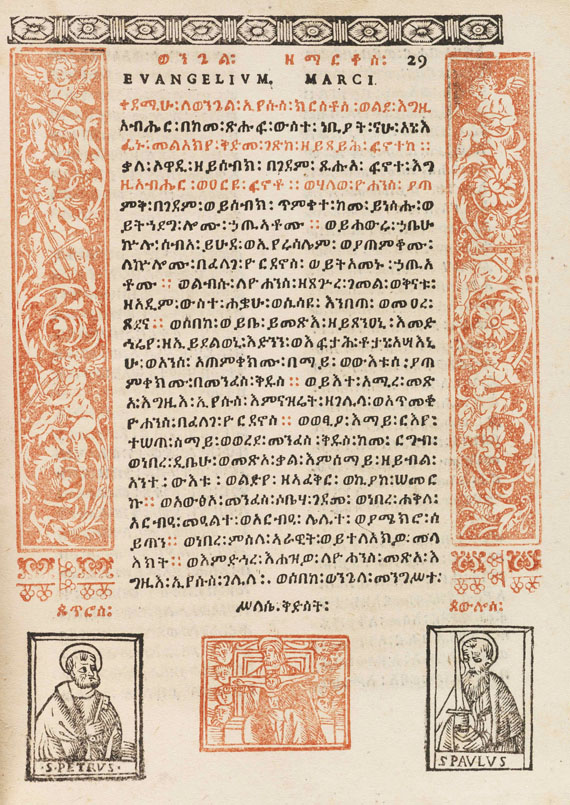 ወንጌል፡ ዘማርቆስ፡ 29
EVANGELIVM. MARCI.
ቀደማሁ፡ለወንጌል፡ኢየሱስ፡ክርስቶስ፡ወልደ፡እግዚ
አብሔር፡በከመ፡ጽሑፍ፡ውስተ፡ነቢያት፡ናሁ፡አነእ
ፌኑ፡መልአክየ፡ቅድመ፡ገጽከ፡ዘይጸይሕ፡ፍኖተከ፡፡
ቃለ፡ዐዋዲ፡ዘይሰብክ፡በገዳም፡ጺሑ፡ፍኖተ፡እግ
ዚአብሔር፡ወዐርዩ፡ፍኖቶ፡፡ወሀለወ፡ዮሐንስ፡ያጠ
ምቅ፡በገዳም፡ወይሰብክ፡ጥምቀተ፡ከመ፡ይነስሑ፡ወ
ይትኀደግ፡ሎሙ፡ኃጢአቶሙ፡፡ወይሐውሩ፡ኃቤሁ
ኵሉ፡ሰብአ፡ይሁዳ፡ወኢየሩሳሌም፡ወያጠምቆሙ፡
ለኵሎሙ፡በፈለገ፡ዮርዳኖስ፡ወይትአመኑ፡ኃጢአ
ቶሙ፡፡ወልብሱ፡ለዮሐንስ፡ዘጸጕረ፡ገመል፡ወቅናቱ፡
ዘአዲም፡ውስተ፡ሐቋሁ፡ወሲሳዩ፡አንበጣ፡ወመዐረ፡
ጸደና፡፡ወሰበከ፡ወይቤ፡ይመጽእ፡ዘይጸንዐኒ፡እምድ
ኅሬየ፡ዘኢይደልወኒ፡እድንን፡ወእፍታሕ፡ቶታነ፡አሣእኒ
ሁ፡ወአንሰ፡አጠምቀክሙ፡በማይ፡ወውእቱሰ፡ያጠ
ምቀክሙ፡በመንፈስ፡ቅዱስ፡፡ወይእተ፡አሚረ፡መጽ
አ፡እግዚእ፡ኢየሱስ፡እምናዝሬት፡ዘገሊላ፡ወአጥመቆ
ዮሐንስ፡በፈለገ፡ዮርዳኖስ፡፡ወወፂአ፡እማይ፡ርእየ፡
ተሠጠ፡ሰማይ፡ወወረደ፡መንፈስ፡ቅዱስ፡ከመ፡ርግብ፡
ወነበረ፡ዲቤሁ፡ወመጽአ፡ቃል፡እምሰማይ፡ዘይብል፡
አንተ፡ውእቱ፡ወልድየ፡ዘአፈቅር፡ወኪያከ፡ሠመር
ኩ፡፡ወአውፅኦ፡መንፈስ፡ሶቤሃ፡ገዳመ፡ወነበረ፡ሐቅለ፡
አርብዓ፡መዓልተ፡ወአርብዓ፡ሌሊተ፡ወያሜክሮ፡ሰ
ይጣን፡፡ወነበረ፡ምስለ፡አራዊት፡ወይተልአክዎ፡መላ
እክት፡፡ወእምድኅረ፡እሐዝዎ፡ለዮሐንስ፡መጽአ፡እ
ግዚእ፡ኢየሱስ፡ገሊላ፡ወሰበከ፡ወንጌለ፡መንግሥተ፡
ጴጥሮስ፡ ሥላሴ.ቅድስት፡ ጳውሎስ፡
·S·PETRVS·
S·PAVLVS